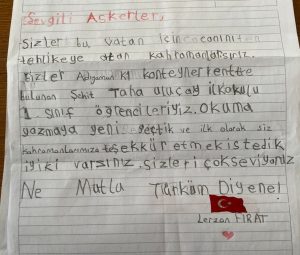 Sevgili Askerler,
Sizler bu vatan için canınızı
tehlikeye atan kahramanlarsınız.
Bizler Adıyaman K1 konteynerkentte
bulunan Şehit Taha uluçay ilkokulu
1. sınıf öğrencileriyiz. Okuma
yazmaya yeni geçtik ve ilk olarak siz
kahramanlarımıza teşekkür etmek istedik
iyiki varsınız. sizleri çokseviyoruz
Ne Mutlu Türküm Diyene!
Lerzan FIRAT